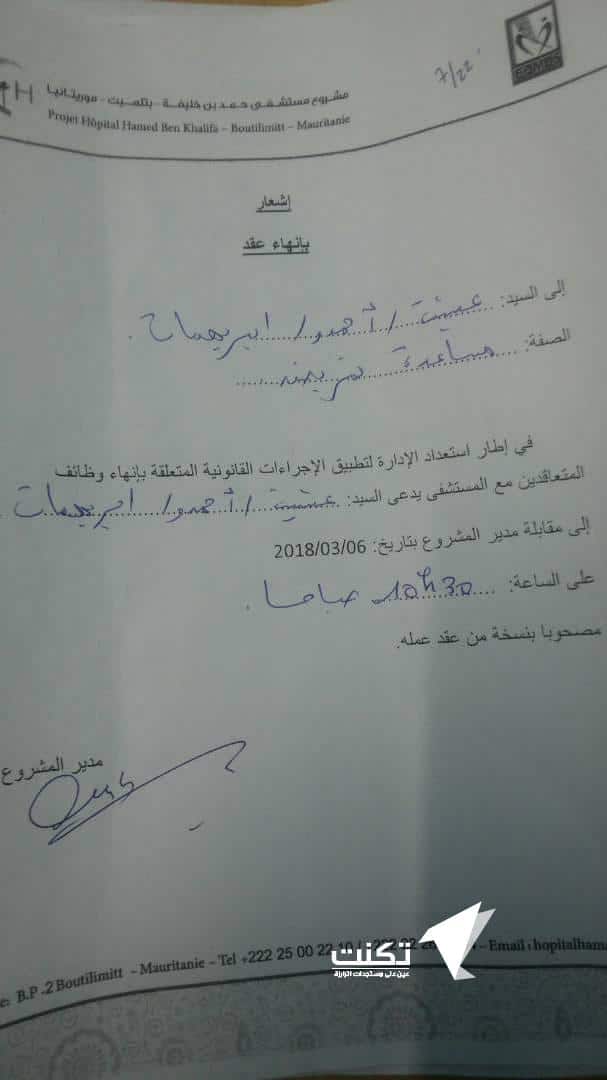 7/22
مشروع مستشفى حمد بن خليفة - بتلميت - موريتانيا
Projet Hôpital Hamed Ben Khalifa – Boutilimitt – Mauritanie
إشعار
بإنهاء عقد
إلى السيد: عيشت / أحمدو / ابريهمات.
الصفة: مساعدة تمريض
في إطار استعداد الإدارة لتطبيق الإجراءات القانونية المتعلقة بإنهاء وظائف
المتعاقدين مع المستشفى يدعى السيد: عيشت / أحمدو / ابريهمات
إلى مقابلة مدير المشروع بتاريخ: 2018/03/06
على الساعة: 10h30 صباحا.
مصحوبا بنسخة من عقد عمله.
مدير المشروع
B.P. 2 Boutilimitt - Mauritanie - Tel +222 25 00 22 10 / – Email : hopitalham
تكنت
عين على مستجدات الترارزة